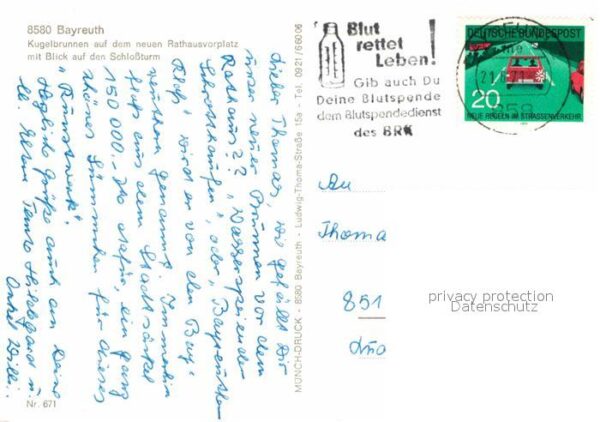 8580 Bayreuth
Kugelbrunnen auf dem neuen Rathausvorplatz
mit Blick auf den Schloßturm
Lieber Thomas, wie gefällt Dir
unser neuer Brunnen vor dem
Rathaus?? "Wasserspeiender
" oder "Bayreuther
" wird er von den Bay-
reuthern genannt. Immerhin
aus dem Stadtsäckel
150 000.- DM dafür, ein ganz
schönes Sümmchen für dieses
"Kunstwerk".
Herzliche Grüße auch an Deine
lb. Eltern Tante Hildegard u.
Onkel Willi.
Nr. 671
MÜNCH-DRUCK - 8580 Bayreuth - Ludwig-Thoma-Straße 15a - Tel. 0921/66006
Blut
rettet
Leben!
Gib auch Du
Deine Blutspende
dem Blutspendedienst
des BRK
DEUTSCHE BUNDESPOST
20
NEUE REGELN IM STRASSENVERKEHR
An
Thoma
851
privacy protection
Datenschutz